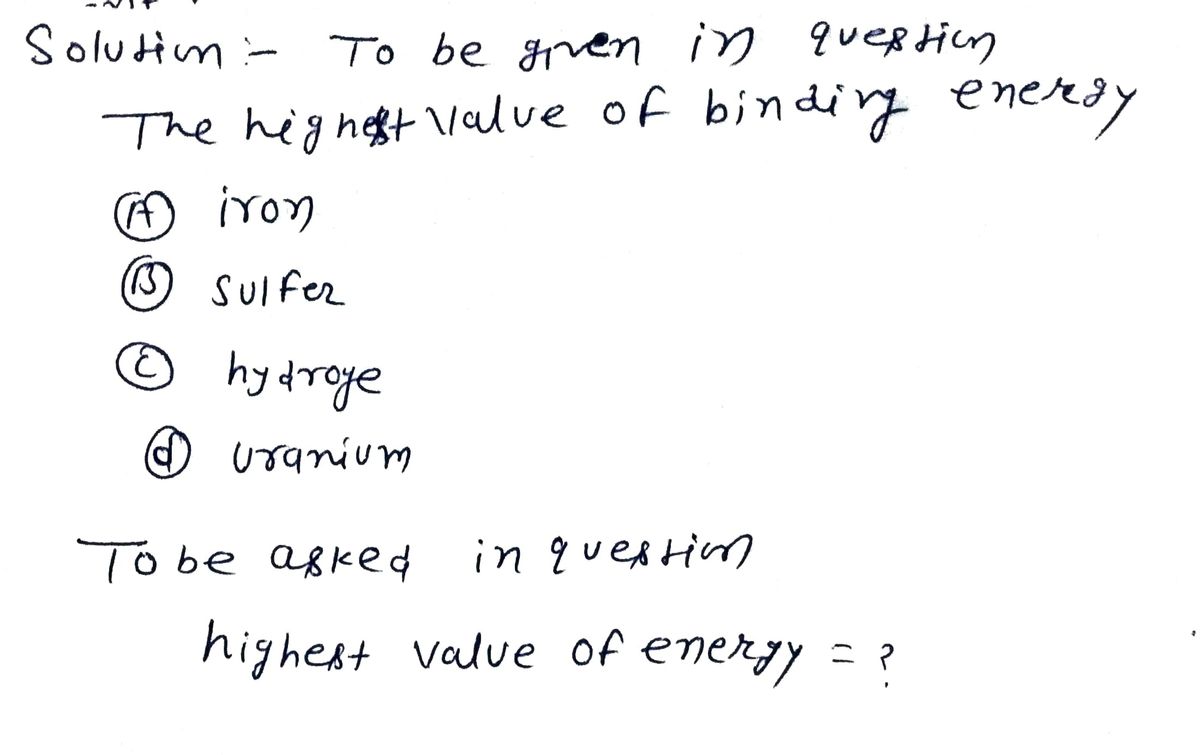 Solution :- To be given in question
The highest value of binding energy
(A) iron
(B) sulfer
(C) hydroge
(d) uranium
To be asked in question
highest value of energy = ?